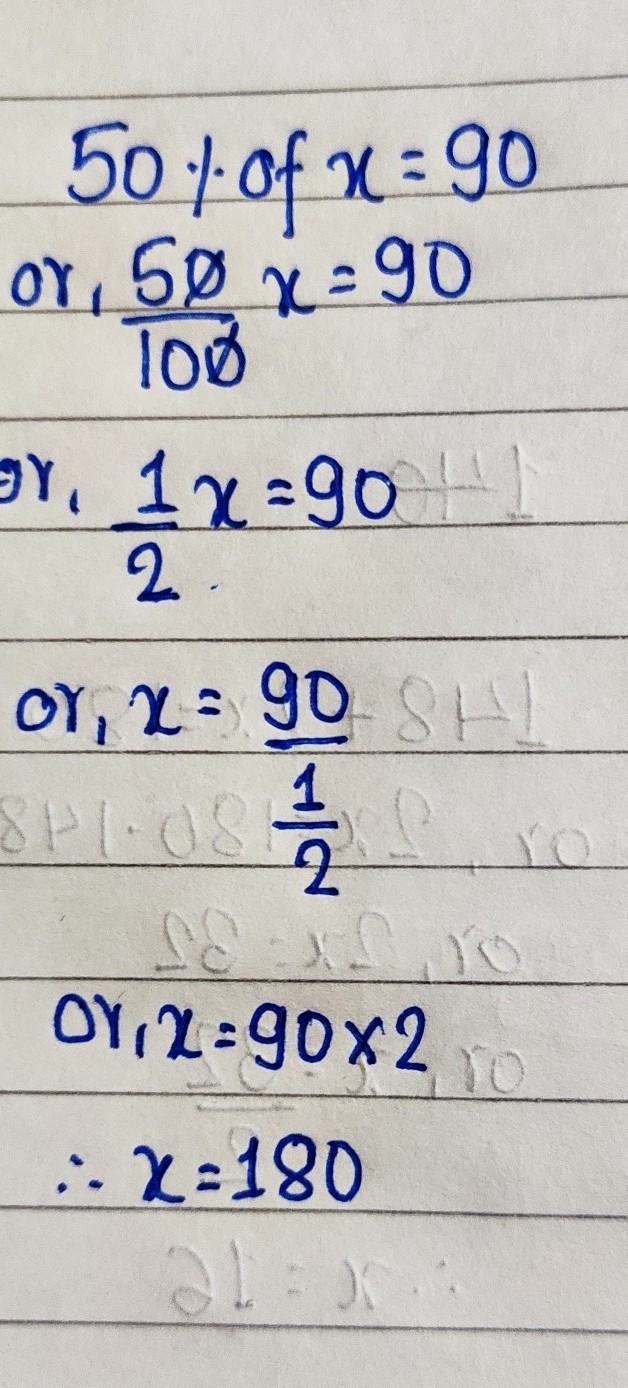 50% of x = 90
or, 50/100 x = 90
or, 1/2 x = 90
or, x = 90/(1/2)
or, x = 90 × 2
∴ x = 180